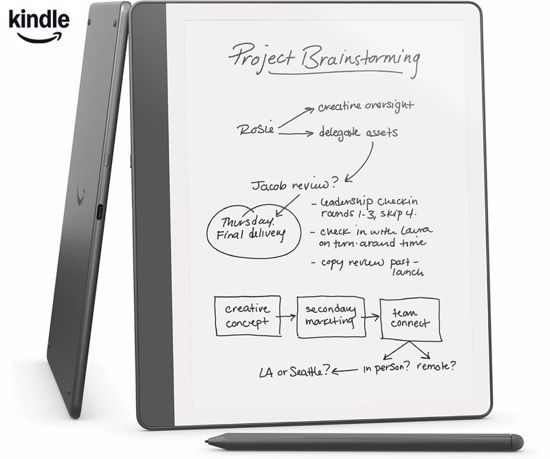 kindle
Project Brainstorming
creative oversight
Rosie
delegate assets
Jacob review?
- leadership checkin
rounds 1-3, skip 4.
Thursday.
Final delivery
- check in with Laura
on turn-around time
- copy review post-
launch
creative
concept
secondary
marketing
team
connect
LA or Seattle?
in person? remote?